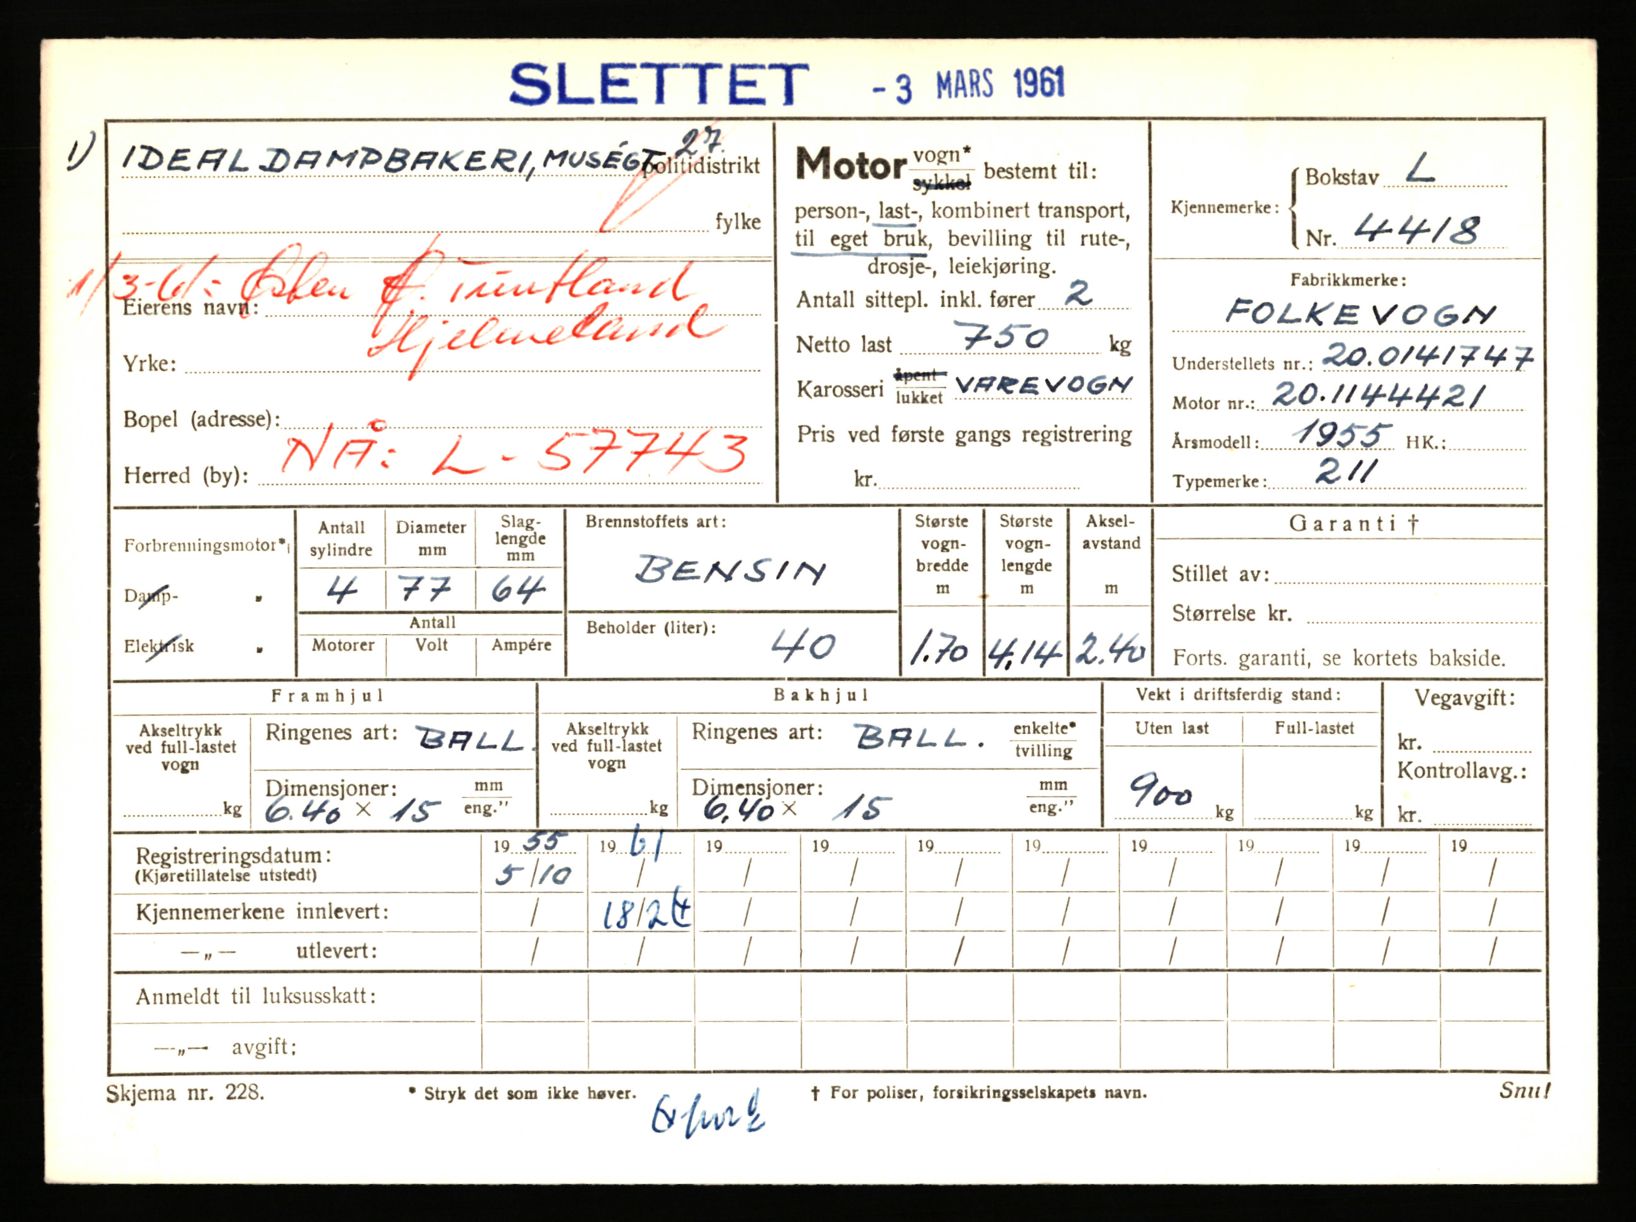 SLETTET - 3 MARS 1961
1) IDEAL DAMPBAKERI, MUSÉGT. 27. politidistrikt
fylke
1/3-61: A. Hjelmeland
Eierens navn:
Yrke:
Bopel (adresse):
NÅ: L - 57743
Herred (by):
Motor vogn* sykkel bestemt til:
person-, last-, kombinert transport,
til eget bruk, bevilling til rute-,
drosje-, leiekjøring.
Antall sittepl. inkl. fører 2
Netto last 750 kg
Karosseri åpent lukket VAREVOGN
Pris ved første gangs registrering
kr.
Kjennemerke: Bokstav L
Nr. 4418
Fabrikkmerke:
FOLKEVOGN
Understellets nr.: 20.0141747
Motor nr.: 20.1144421
Årsmodell: 1955 HK.:
Typemerke: 211
Forbrenningsmotor*
Damp- "
Elektrisk "
Antall sylindre Diameter mm Slag-lengde mm
4 77 64
Antall
Motorer Volt Ampére
Brennstoffets art:
BENSIN
Beholder (liter):
40
Største vogn-bredde m Største vogn-lengde m Aksel-avstand m
1.70 4,14 2.40
Garanti †
Stillet av:
Størrelse kr.
Forts. garanti, se kortets bakside.
Framhjul
Akseltrykk ved full-lastet vogn
kg
Ringenes art: BALL.
Dimensjoner: mm
6.40 × 15 eng."
Bakhjul
Akseltrykk ved full-lastet vogn
kg
Ringenes art: BALL. enkelte* tvilling
Dimensjoner: mm
6.40 × 15 eng."
Vekt i driftsferdig stand:
Uten last Full-lastet
900 kg kg
Vegavgift:
kr.
Kontrollavg.:
kr.
Registreringsdatum: 19 55 19 61 19 19 19 19 19 19 19 19
(Kjøretillatelse utstedt) 5/10 / / / / / / / / /
Kjennemerkene innlevert: / 18/2 / / / / / / / /
—„— utlevert: / / / / / / / / / /
Anmeldt til luksusskatt:
—„— avgift:
Skjema nr. 228. * Stryk det som ikke høver. † For poliser, forsikringsselskapets navn. Snu!